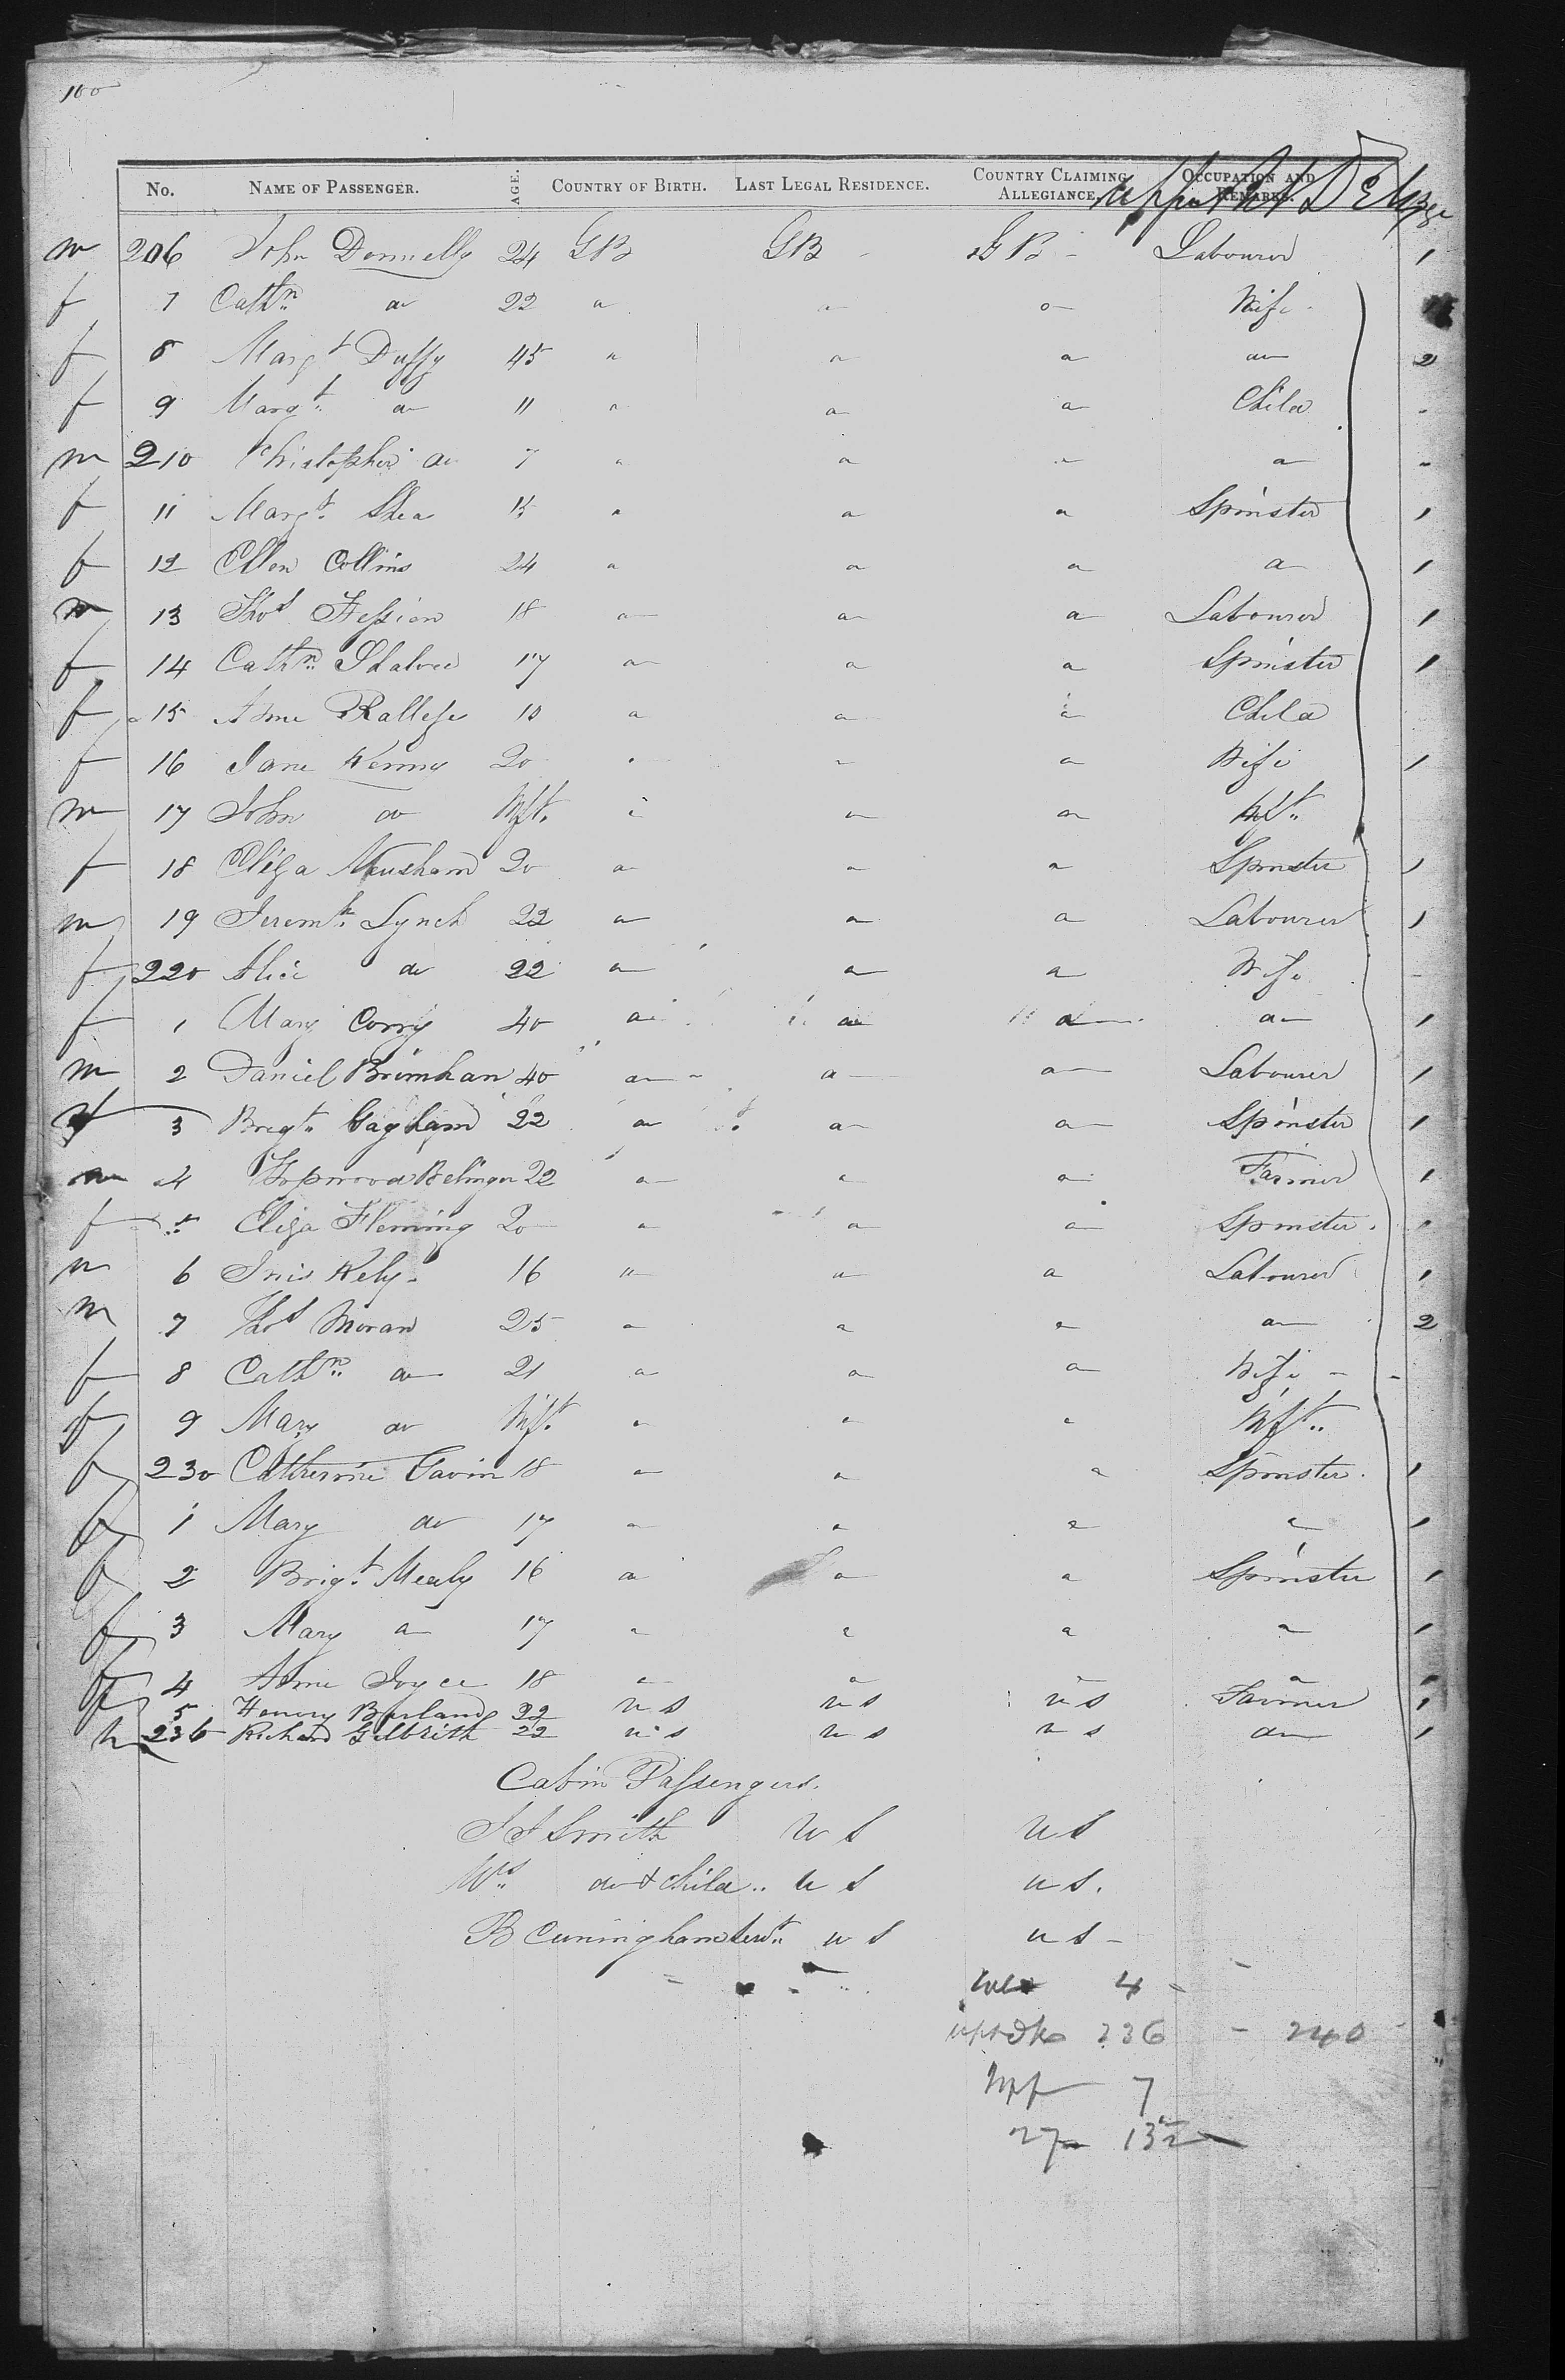 100
No. NAME OF PASSENGER. AGE. COUNTRY OF BIRTH. LAST LEGAL RESIDENCE. COUNTRY CLAIMING ALLEGIANCE. OCCUPATION AND REMARKS.
m 206 John Donnelly 24 GB GB GB Labourer 1
f 7 Cathn do 22 do do do Wife
f 8 Margt Duffy 45 do do do do 2
f 9 Margt do 11 do do do Child
m 210 Christopher do 7 do do do do
f 11 Margt Shea 15 do do do Spinster 1
f 12 Ellen Collins 24 do do do do 1
m 13 Thos Hession 18 do do do Labourer 1
f 14 Cathn 17 do do do Spinster 1
f 15 Anne 10 do do do Child
f 16 Jane Kenny 20 do do do Wife 1
m 17 John do Inft. do do do Inft
f 18 Eliza 20 do do do Spinster 1
m 19 Jeremh Lynch 22 do do do Labourer 1
f 220 Alice do 22 do do do Wife
f 1 Mary Corry 40 do do do do 1
m 2 Daniel Brimhan 40 do do do Labourer 1
f 3 Brigt 22 do do do Spinster 1
m 4 Hopwood 22 do do do Farmer 1
f 5 Eliza Fleming 20 do do do Spinster. 1
m 6 Kely 16 do do do Labourer 1
m 7 Thos Moran 25 do do do do 2
f 8 Cathn do 21 do do do Wife
f 9 Mary do Inft do do do Inft
f 230 Catherine Gavin 18 do do do Spinster. 1
f 1 Mary do 17 do do do do 1
f 2 Brigt Mealy 16 do do do Spinster 1
f 3 Mary do 17 do do do do 1
f 4 Anne Joyce 18 do do do do 1
5 Henery 22 U S U S U S Farmer 1
236 Richard Gilbrith 22 U S U S U S do 1
Cabin Passengers.
Smith U S U S
do & child U S U S.
B Cuningham Servt U S U S
4
236 - 240
Inf 7
27 132